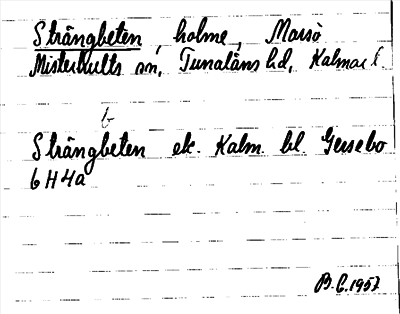 Strängbeten, holme, Marsö
Misterhults sn, Tunaläns hd, Kalmar l.
b
Strängbeten ek. Kalm. bl. Gersebo
6H4a
B.E. 1957